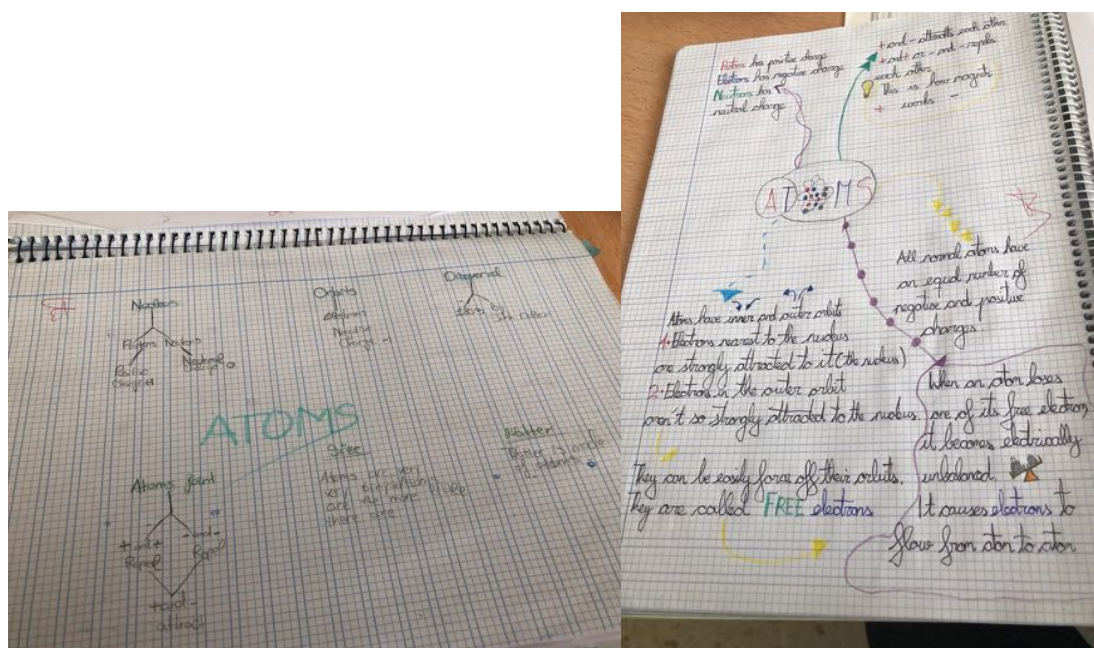 Nucleus
Protons Neutrons
Positive
Charge +
Neutral
Charge 0
Orbits
electrons
Negative
Charge -
ATOMS
Size
Atoms are very
very
are
there are
Matter
Matter is made
of atoms
Atoms joint
+ and +
Repel
- and -
Repel
+ and -
attract
Protons has positive charge
Electrons has negative charge
Neutrons has
neutral charge
+ and - attracts each other
+ and + or - and - repels
each other
This is how magnets
+ works -
ATOMS
All normal atoms have
an equal number of
negative and positive
charges.
Atoms have inner and outer orbits
1. Electrons nearest to the nucleus
are strongly attracted to it (the nucleus)
2. Electrons in the outer orbit
aren't so strongly attracted to the nucleus.
They can be easily force off their orbits.
They are called FREE electrons
When an atom loses
one of its free electrons
it becomes electrically
unbalanced.
It causes electrons to
flow from atom to atom